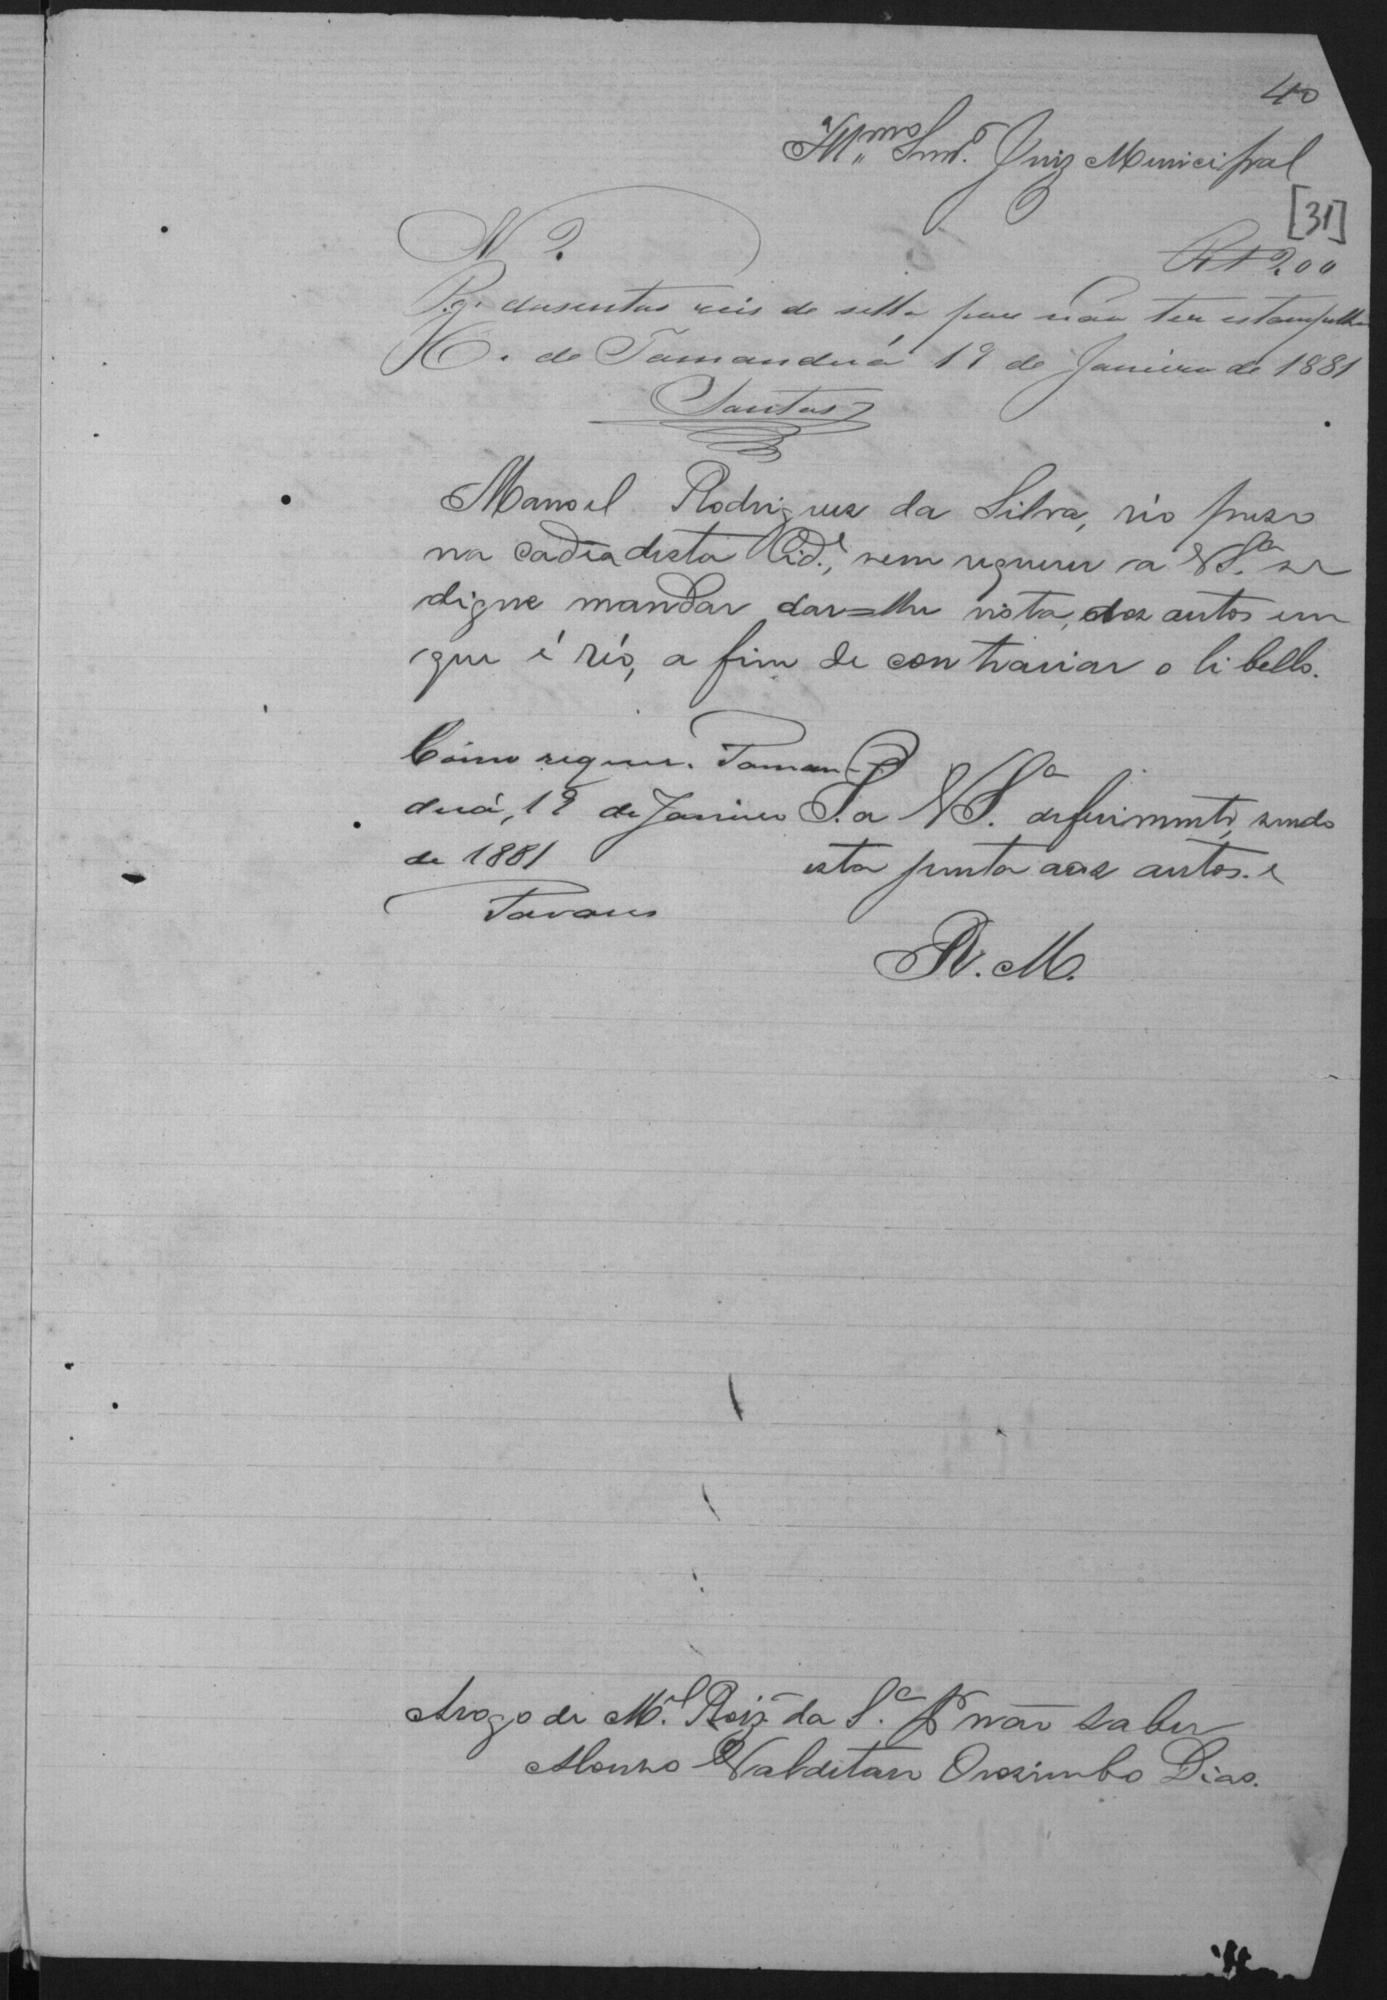 40
Ill.mo Snr. Juiz Municipal
[31]
N 2.
R$ 200
Pg. dusentos reis de sello por não ter estampilha
C. de Tamanduá 19 de Janeiro de 1881
Santos
Manoel Rodrigues da Silva, réo preso
na cadêa desta Cid.e, vem requerer a VS.a se
digne mandar dar=lhe vista, dos autos em
que é réo, a fim de contrariar o libello.
Como requer. Taman-
duá, 19 de Janeiro
de 1881
Tavares
P. a VS.a deferimento, sendo
esta junta aos autos. e
R. M.
Arogo de M.el Roiz da S.a Pr não saber
Alonso Valditaro Orosimbo Dias.